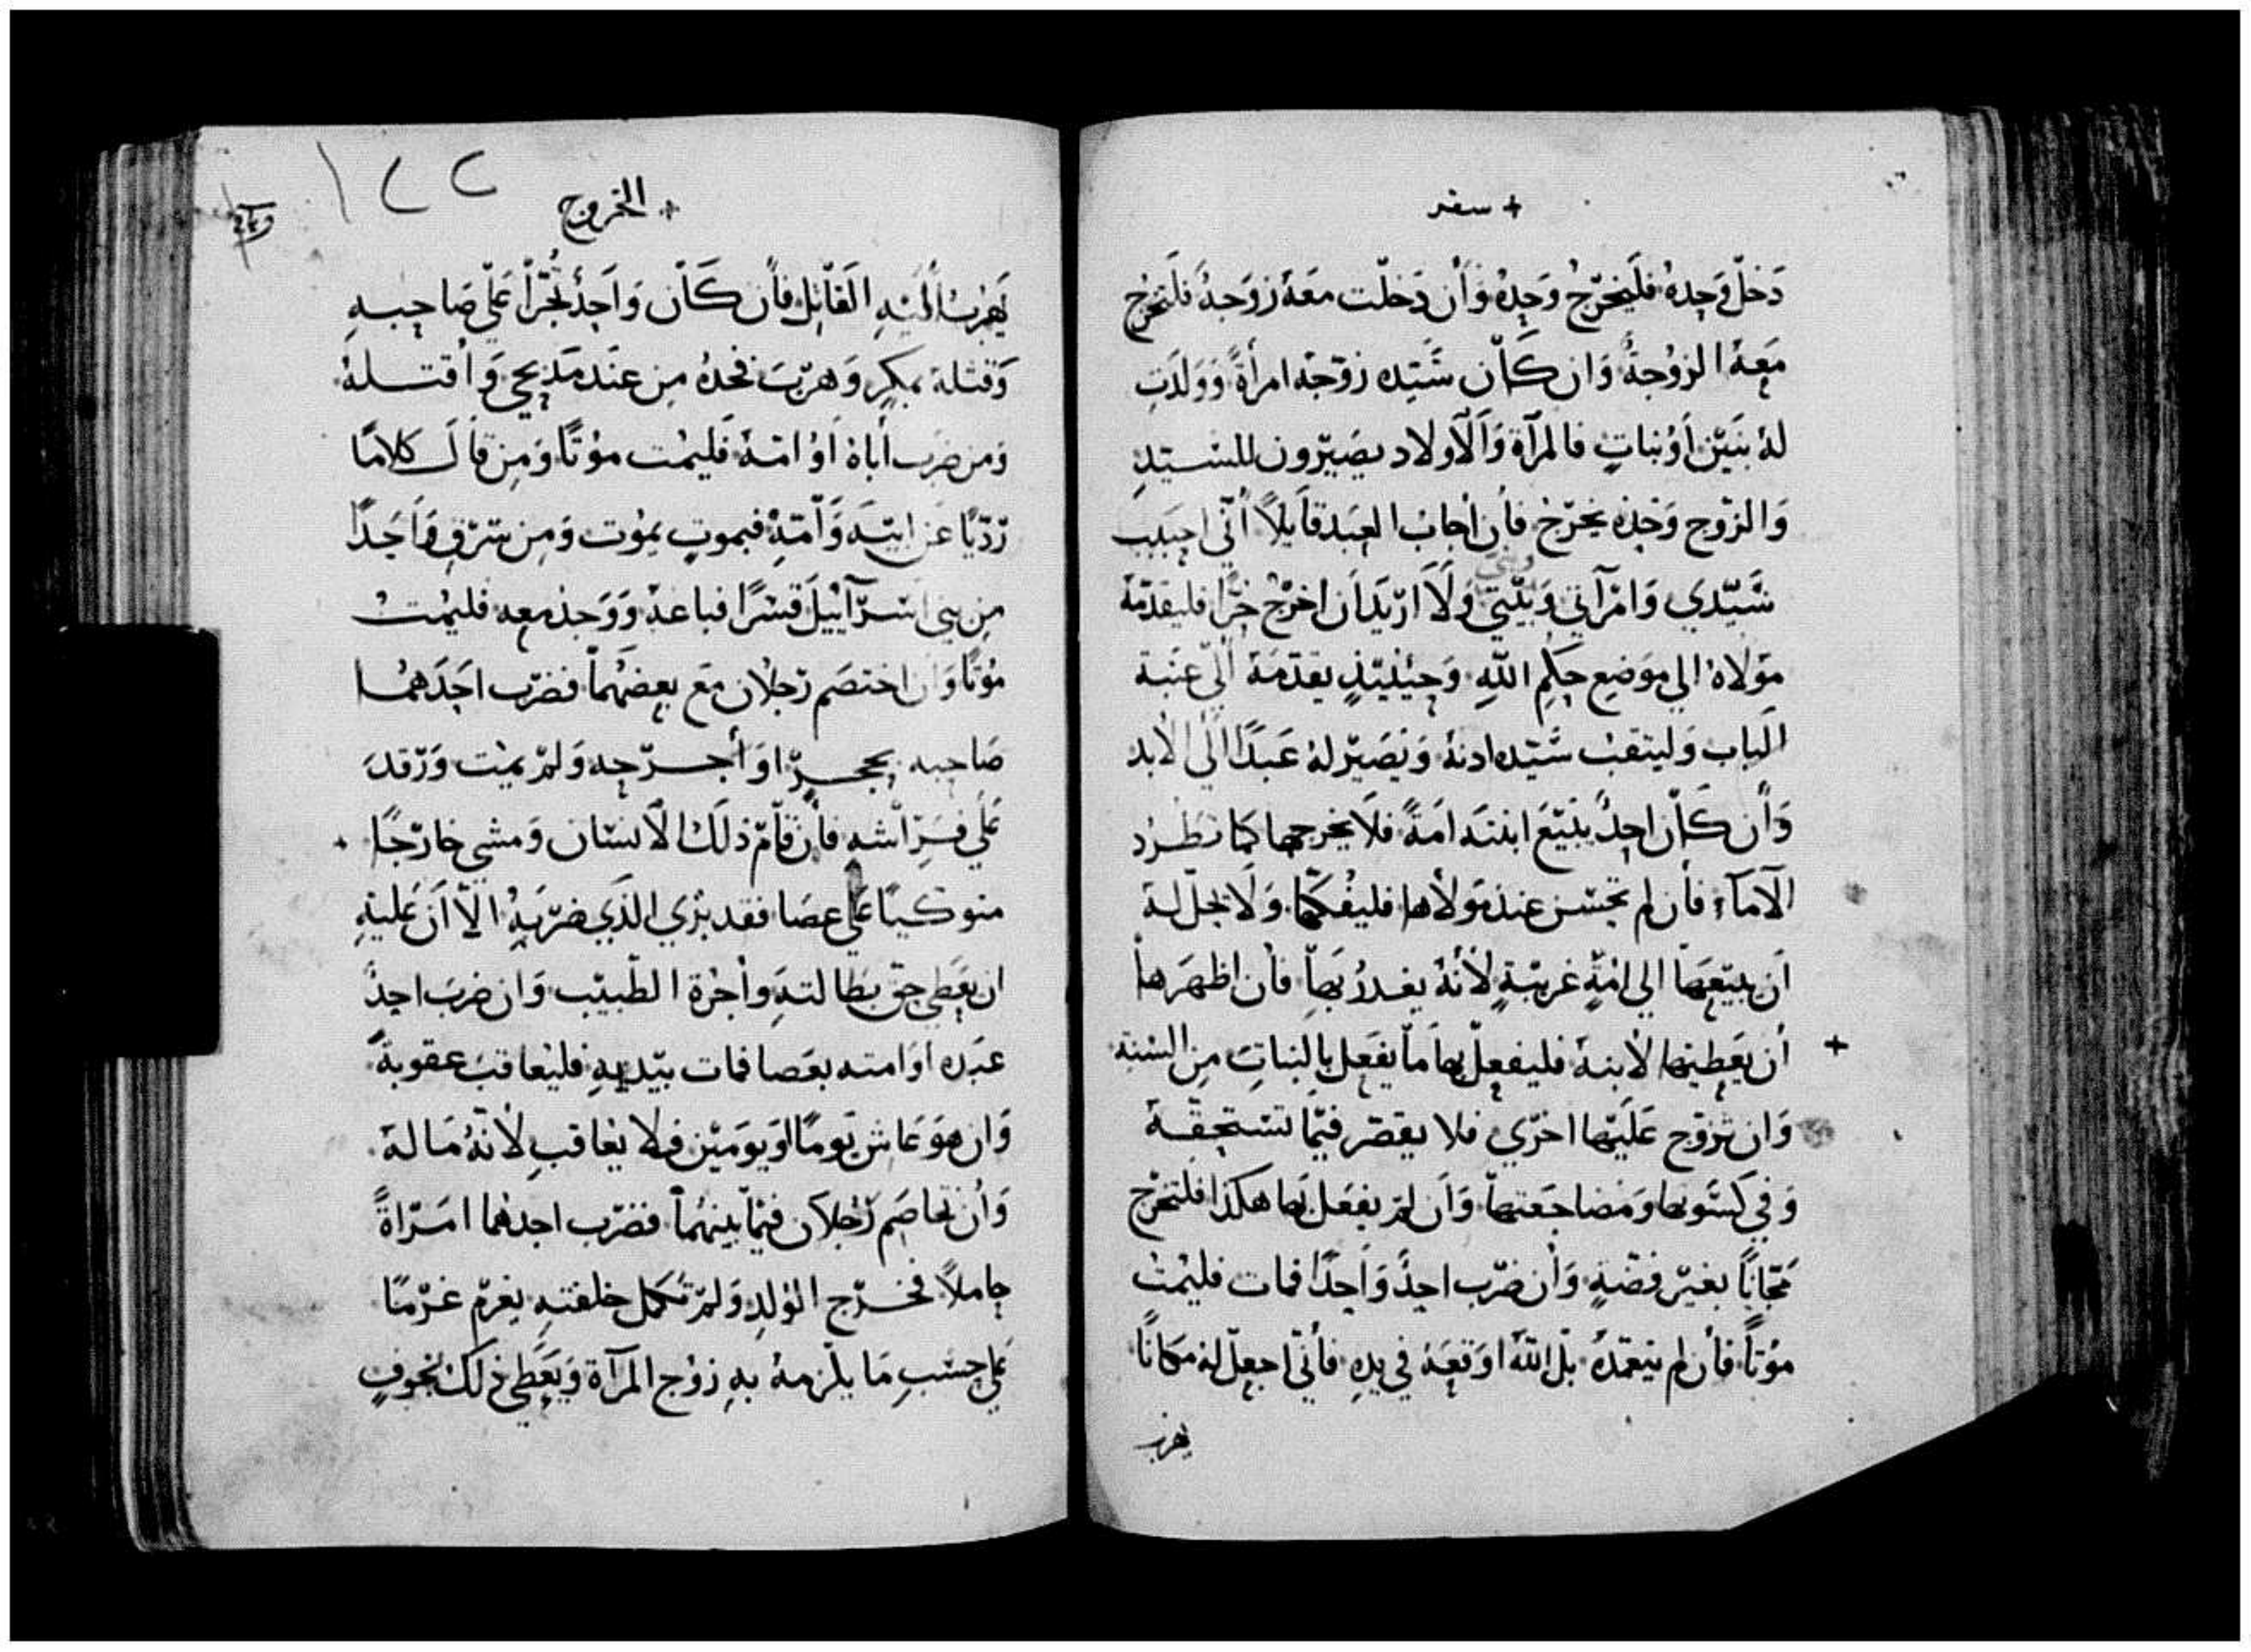 + سفر
دَخل وَحِده فليَخرج وَحِده وَأن دَخلت معَهُ زوَجهُ فلتَخرُج
مَعهُ الزوجةُ وَان كَان سَيّده زوّجهُ امرأةً وَوَلدَت
لهُ بنَيّن أوبناتٍ فالمرآة وَالآولاد يصَيّرون للسيّدِ
وَالزوج وَحِده يخرج فأن اجَابَ العَبدقَايلاً أنّي احِبَبت
سَيّدي وَامرَآتي وَبَيّتي وَلاَ ارّيَد أن اخرُج حُرًّا فليقدّمهُ
مَولاهُ الي مَوَضِع حِكمِ اللّهِ وَحِيّنيّذٍ يقدّمهَ اليّ عتَبة
الَباب وَليتقبْ سَيّده ادنهُ وَيصَيّر لهُ عَبدًا اليَ الابد
وَأن كَان احِدٌ يبّيَع ابنتهَ امَةً فلاَ يخرجها كَما تطرد
الآمَآء فأن لم تحسن عندَ مَولاها فليفُكّها وَلَا يحل لهُ
أن يبَيّعَهاَ الي امّةٍ غريّبةٍ لأنهُ يغدرُ بهاَ فأن اظهَرها
+ أن يعَطِيّها لأبنهُ فليفعِل بهاَ مَا يفَعل بِالبناتِ مِن السنة
وَان تزوّج عَليّها اخرّي فلا يقصر فيّما تستحِقهُ
وَفي كَسَوتها وَمَضاجَعتهاَ وَاَن لمَ يفعَل بَها هكذا فلتخرُج
مَجّانًا بغيّر فضةٍ وَأن ضرّب احِدٌ وَاحِدًا فمات فليمُتْ
مَوُتاً فأن لم يتعمّدهُ بلّ اللهُ اوَقعَهُ في يدِهِ فأنّي اجعِلّ لهُ مَكانًا
يهرب
+ الخروج
١٢٢
يَهرُب اليّهِ القَاتِل فأن كَان وَاحِدٌ تجَرّأ عَليّ صَاحِبهِ
وَقتله بمَكِر وَهرّبَ فخدهُ مِن عندَ مَدبحِي وَاقتلهُ
وَمن ضَرَب أباهُ أوُ امّهُ فليمُت مَوُتًا وَمِن قال كلامًا
رَدّيًا عَن ابيّهَ وَأمّهِ فبموتٍ يموُت وَمِن سَرَق وَاحَدًا
مِن بني اسرآييّلَ قسرًا فباعهُ وَوَجدُ معِه فليمُت
مُوتًا وَأن اختصَم رَجلان معَ بعِضهُماَ فضرّب احَدَهُما
صَاحِبه بحجرٍّ اوَ أجرّحِه وَلمّ يمُت وَرّقدَ
عَلي فرَاشهِ فأن قامّ ذلَك الآنسّان وَمشي خارّجًا
متوكيًا عَلي عصَا فقد بري الذَي ضَرّبَهُ الآ أن عَليّهِ
ان يَعَطِي حِقّ بطَالتهِ وَأجُرةَ الطّبيّب وَان ضرب احِدٌ
عَبَده اوَ امته بعَصا فمات بيّديهِ فليُعاقب عقوبةً
وَان هوَ عَاش يَومًا اوَ يوَميّن فلا يعُاقبِ لأنّهُ مَالهُ
وَأن تخاصَم رَجُلاَن فيّما بينهُماَ فضرّب احِدهُما امَرَاةً
حِاملاً فخرّج الوُلدِ وَلمّ تكمل خلقتهِ يغرّم غرّمًا
عَلي حِسَبِ مَا يلّزمهُ بهِ زوُج المَرآة وَيَعَطَي ذَلكَ بخوفٍ